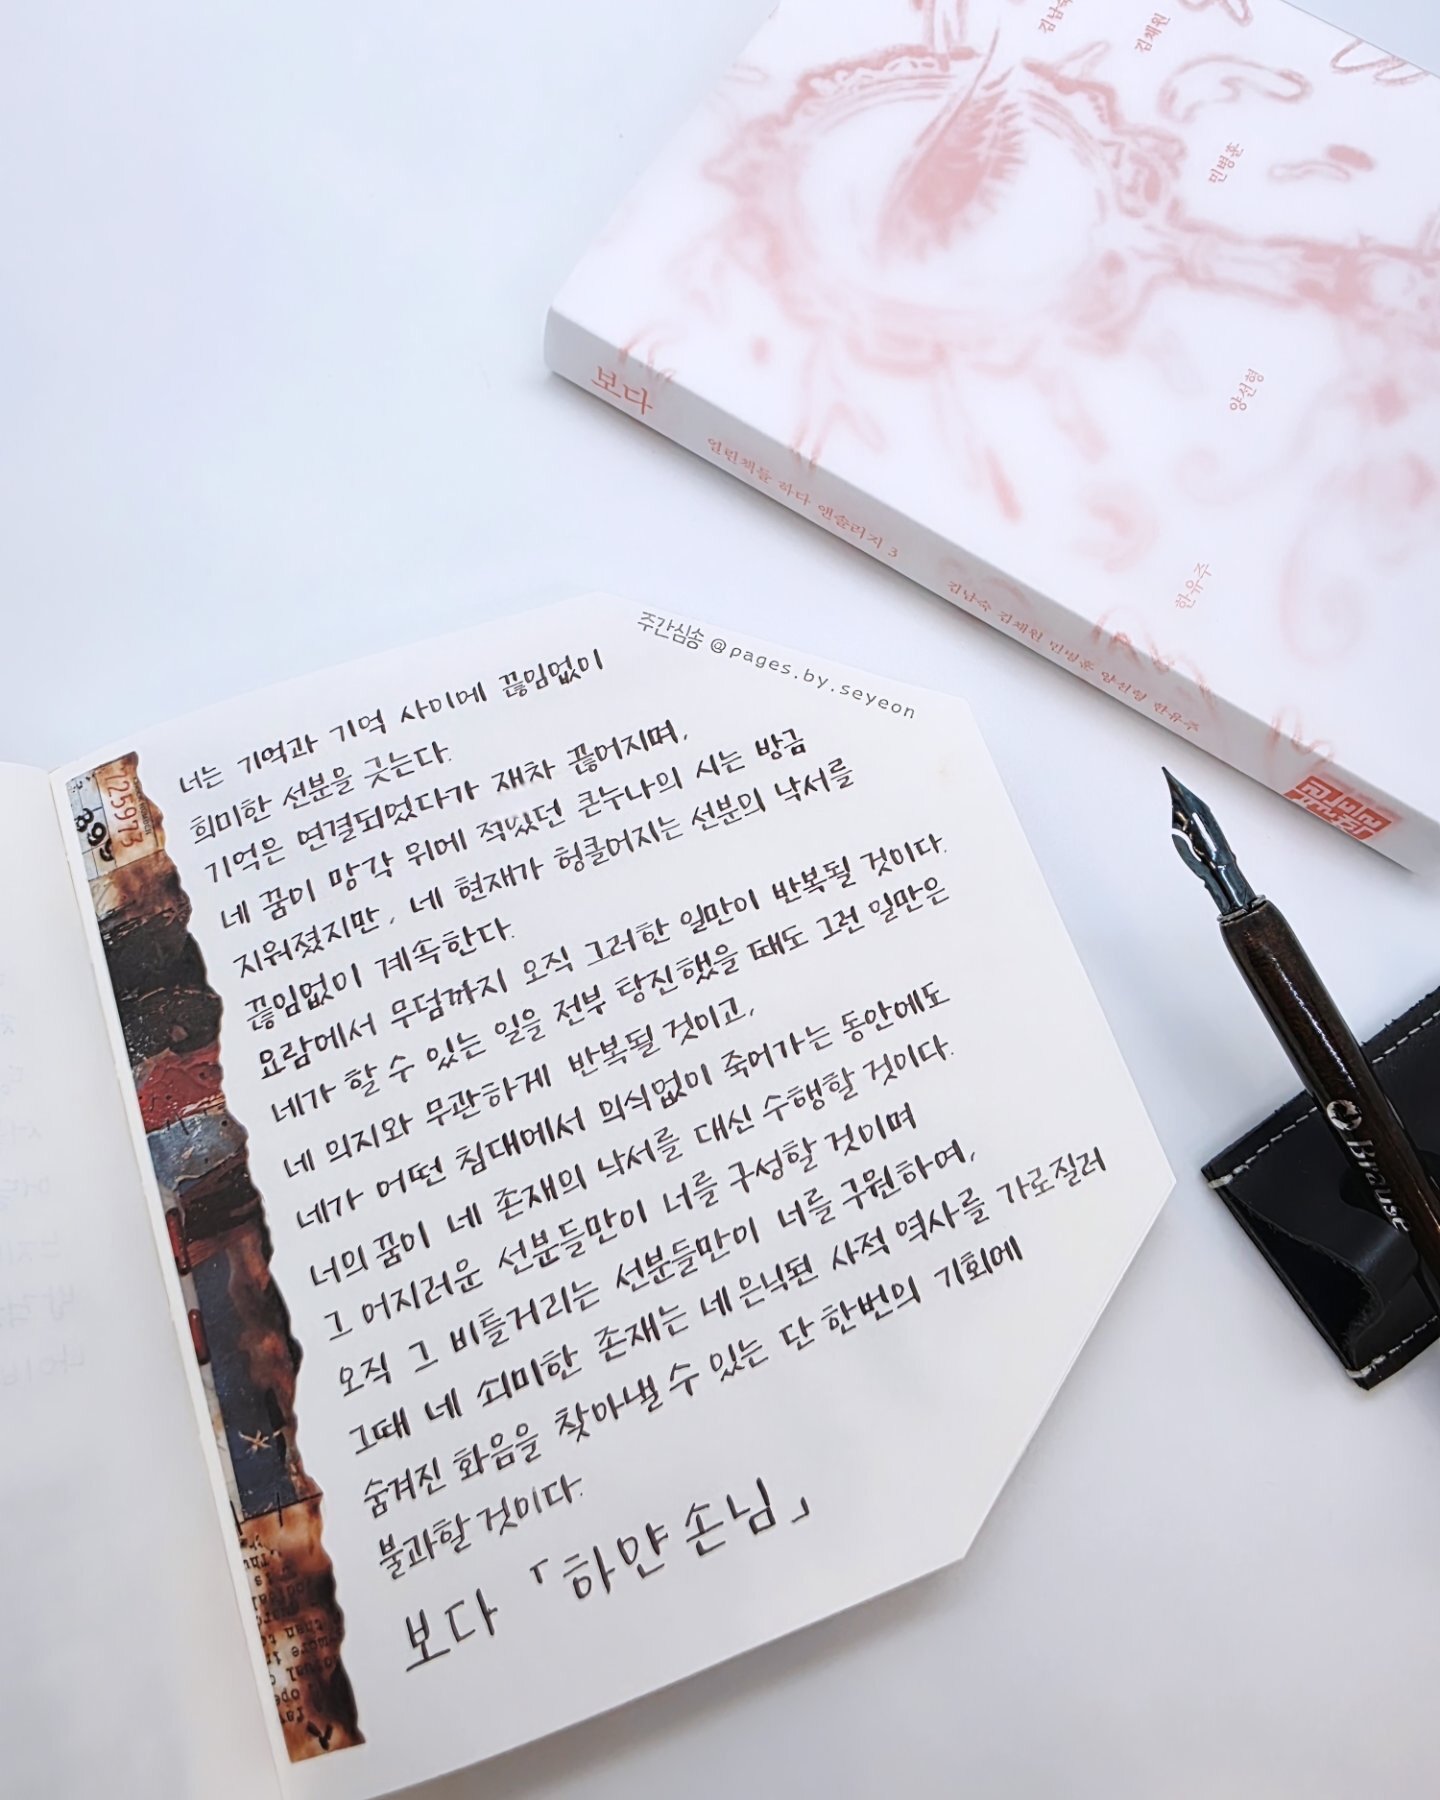 김남숙
김채원
민병훈
양선형
한유주
보다
열린책들 하다 앤솔러지 3
김남숙 김채원 민병훈 양선형 한유주
주간심송 @pages.by.seyeon
너는 기억과 기억 사이에 끊임없이
희미한 선분을 긋는다.
기억은 연결되었다가 재차 끊어지며,
네 꿈이 망각 위에 적있던 큰누나의 시는 방금
지워졌지만, 네 현재가 헝클어지는 선분의 낙서를
끊임없이 계속한다.
요람에서 무덤까지 오직 그러한 일만이 반복될 것이다.
네가 할 수 있는 일을 전부 탕진했을 때도 그런 일만은
네 의지와 무관하게 반복될 것이고,
네가 어떤 침대에서 의식없이 죽어가는 동안에도
너의 꿈이 네 존재의 낙서를 대신 수행할 것이다.
그 어지러운 선분들만이 너를 구성할 것이며
오직 그 비틀거리는 선분들만이 너를 구원하여,
그때 네 희미한 존재는 네 은닉된 사적 역사를 가로질러
숨겨진 화음을 찾아낼 수 있는 단 한번의 기회에
불과할 것이다.
보다 「하얀 손님」
725973
899
Brause